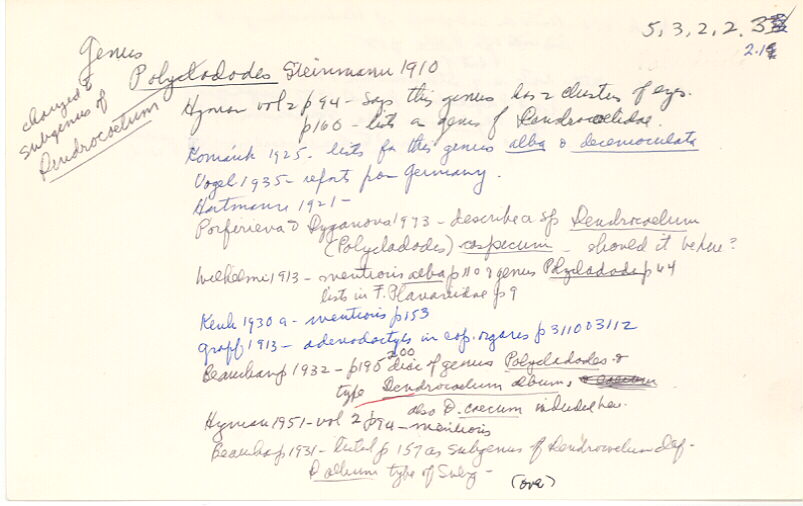 5, 3, 2, 2, 3
2.1
Genus
Polycladodes Steinmann 1910
changed to
subgenus of
Dendrocoelum
Hyman vol 2 p 94 - says this genus has 2 clusters of eyes.
p 160 - lists as genus of Dendrocoelidae.
Komárek 1925 - lists for this genus alba & decemoculata
Vogel 1935 - reports from Germany.
Hartmann 1921 -
Porfirieva & Dyganova 1973 - describe a sp Dendrocoelum
(Polycladodes) caspecum - should it be here?
Wilhelmi 1913 - mentions alba p 110 & genus Polycladodes p 44
lists in F. Planariidae p 9
Kenk 1930 a - mentions p 153
Graff 1913 - adenodactyls in cop. organs p 3110 & 3112
200
Beauchamp 1932 - p 195 disc of genus Polycladodes &
type Dendrocoelum album,
also D. caecum included here.
Hyman 1951 - vol 2 p 94 - mentions
Beauchamp 1931 - listed p 157 as subgenus of Dendrocoelum def.
D album type of subg -
(over)